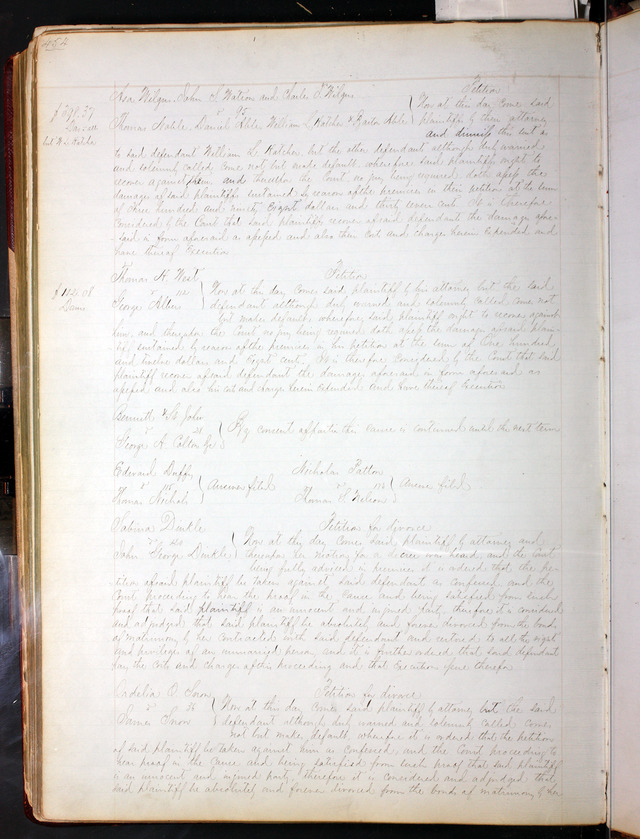 454
Asa Wilgus John S Watson and Charles S Wilgus Petition
vs
Thomas Noble, Daniel Able, William L Katcher & Able Now at this day come said plaintiffs by their attorney
$398.37 and dismiss this suit as
to said defendant William L. Katcher, but the other defendants although duly warned
and solemnly called come not but make default, wherefore said plaintiffs ought to
recover against them and thereupon the Court no jury being required doth assess the
damages of said plaintiffs sustained by reason of the premises in their petition at the sum
of three hundred and ninety Eight dollars and thirty seven cents. It is therefore
considered by the Court that said plaintiffs recover of said defendants the damages afore-
-said in form aforesaid assessed and also their costs and charges herein Expended and
have thereof Execution
Thomas H West Petition
vs 112
George Allen Now at this day come said plaintiff by his attorney but the said
$112.08 defendant although duly warned and solemnly called come not
but makes default, wherefore said plaintiff ought to recover against
him, and thereupon the Court no jury being required doth assess the damages of said plain-
-tiff sustained by reason of the premises in his petition at the sum of One hundred
and twelve dollars and Eight cents, It is therefore Considered by the Court that said
plaintiff recover of said defendant the damages aforesaid in form aforesaid as
assessed and also his costs and charges herein Expended and have thereof Execution
Bennett & St John
vs
George A Colton By consent of parties this cause is continued until the next term
Edward Duffy Nicholas Patton
vs vs
Thomas Nichols Answer filed Thomas S Nelson Answer filed
Sabina Dinkle Petition for divorce
vs
John George Dinkle Now at this day comes said plaintiff by attorney and
thereupon her motion for a decree was heard, and the Court
being fully advised in premises it is ordered that the pe-
-tition of said plaintiff be taken against said defendant as confessed and the
Court proceeding to hear the proof in the cause and being satisfied from such
proof that said plaintiff is an innocent and injured party, therefore it is considered
and adjudged that said plaintiff be absolutely and forever divorced from the bonds
of matrimony by her contracted with said defendant and restored to all the rights
and privileges of an unmarried person, and it is further ordered that said defendant
pay the costs and charges of this proceeding and that Execution issue therefor
Cadelia B Snow Petition for divorce
vs
James Snow Now at this day comes said plaintiff by attorney but the said
defendant although duly warned and solemnly called comes
not but makes default, wherefore it is ordered that the petition
of said plaintiff be taken against him as confessed, and the Court proceeding to
hear proof in the cause and being satisfied from such proof that said plaintiff
is an innocent and injured party, therefore it is considered and adjudged that
said plaintiff be absolutely and forever divorced from the bonds of matrimony by her